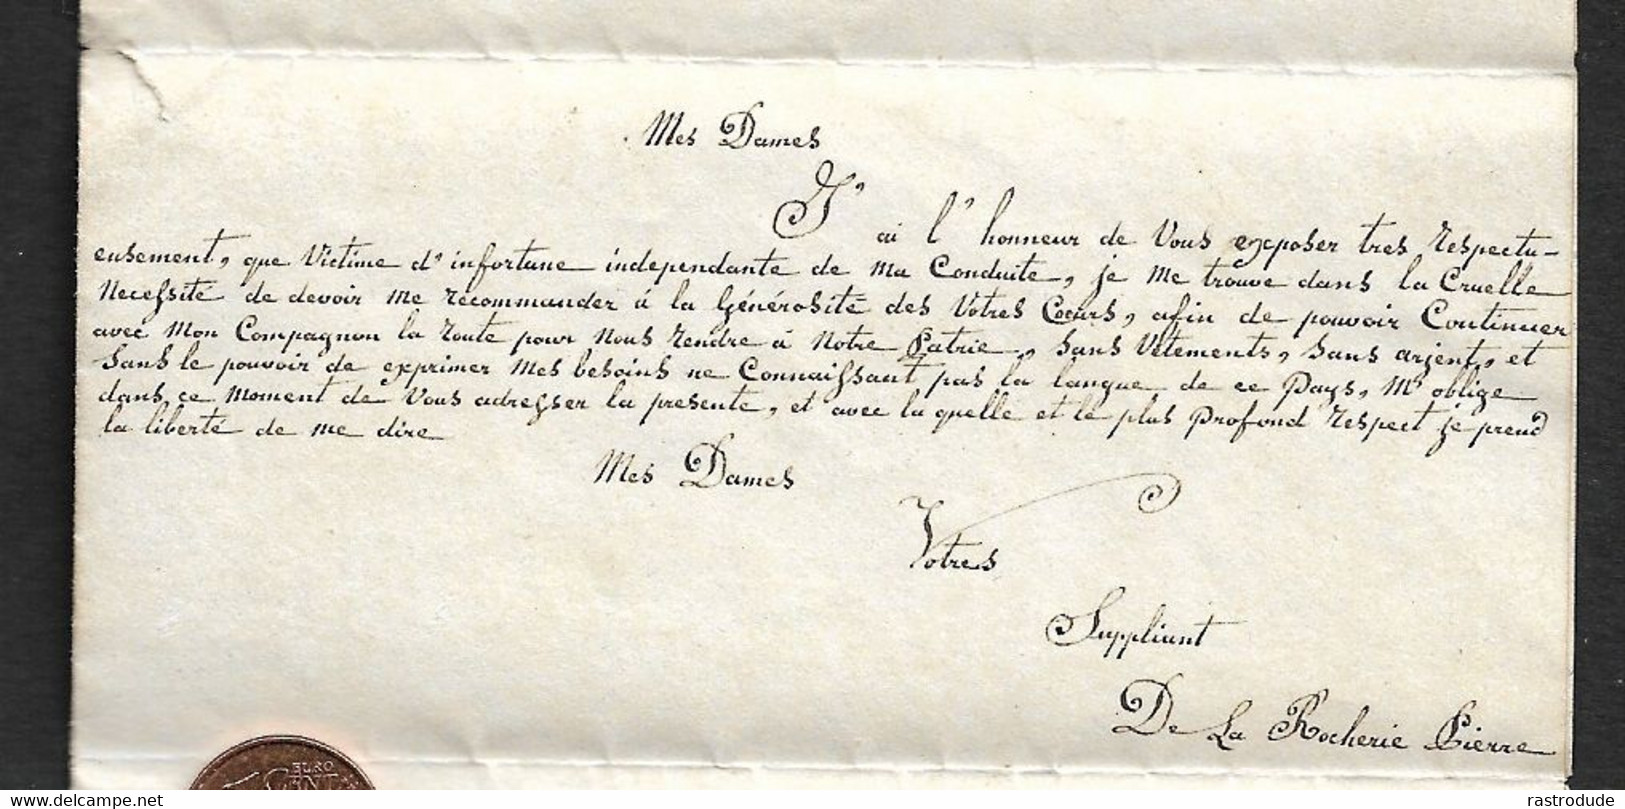 Mes Dames
J'ai l'honneur de Vous exposer tres respectu-
eusement, que Victime d'infortune independante de ma Conduite, je me trouve dans la Cruelle
necessité de devoir me recommander à la Générosité des Votres Coeurs, afin de pouvoir Continuer
avec mon Compagnon la route pour nous rendre à notre Patrie, Sans Vetements, Sans arjent, et
Sans le pouvoir de exprimer mes besoins ne Connaissant pas la langue de ce Pays, M'oblige
dans ce moment de Vous adresser la presente, et avec la quelle et le plus profond respect je prend
la liberté de me dire
Mes Dames
Votres
Suppliant
De La Rocherie Pierre
EURO
CENT
delcampe.net
rastrodude